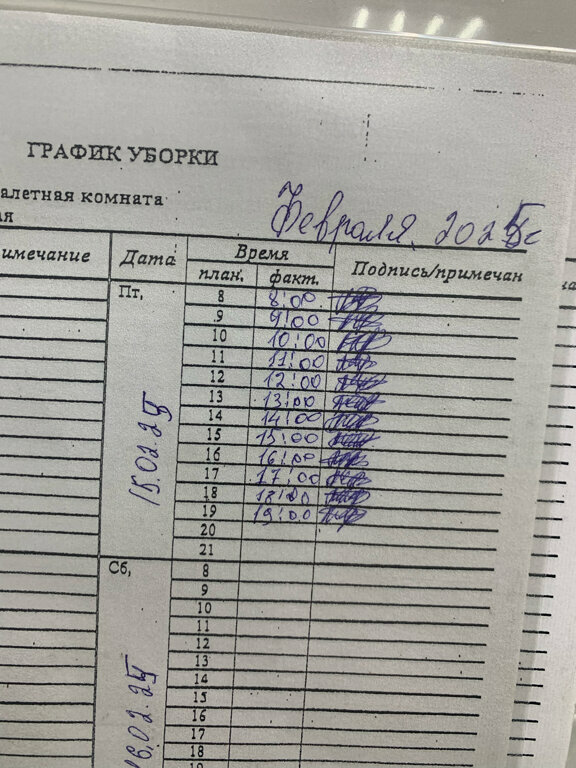 ГРАФИК УБОРКИ
алетная комната
ая
Февраля, 2025г
имечание Дата Время Подпись/примечан
план. факт.
Пт, 8 8:00
9 9:00
10 10:00
11 11:00
12 12:00
13 13:00
14 14:00
15 15:00
16 16:00
17 17:00
18 18:00
19 19:00
20
21
15.02.25
Сб, 8
9
10
11
12
13
14
15
16
17
18
19
16.02.25